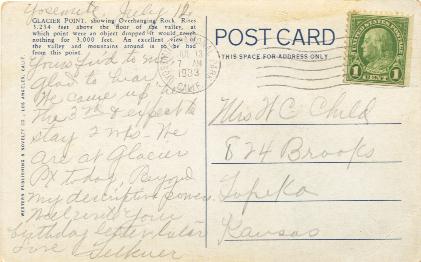 Yosemite July 12
GLACIER POINT, showing Overhanging Rock, Rises
3,254 feet above the floor of the valley, at
which point were an object dropped it would touch
nothing for 3,000 feet. An excellent view of
the valley and mountains around is to be had
from this point.
POST CARD
THIS SPACE FOR ADDRESS ONLY
JUL 13
7 AM
1933
CALIF.
UNITED STATES POSTAGE
1 CENT 1
WESTERN PUBLISHING & NOVELTY CO., LOS ANGELES, CALIF.
Yours fwd to me
Glad to hear
We came up
the 3rd & expect to
stay 2 wks. We
are at Glacier
Pt today. Beyond
my descriptive powers
Will send your
birthday letter later
Love
Mrs W C Child
824 Brooks
Topeka
Kansas